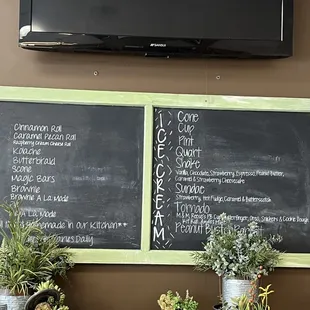 Cinnamon Roll
Caramel Pecan Roll
Raspberry Cream Cheese Roll
Kolache
Butterbraid
Scone
Magic Bars
Brownie
Brownie A La Mode
A La Mode
Homemade in our Kitchen**
Daily
ICE CREAM
Cone
Cup
Pint
Quart
Shake
Vanilla, Chocolate, Strawberry, Espresso, Peanut Butter,
Caramel & Strawberry Cheesecake
Sundae
Strawberry, Hot Fudge, Caramel & Butterscotch
Tornado
M&M, Reese's PB Cup, Butterfinger, Oreo, Snickers & Cookie Dough
Peanut Buster